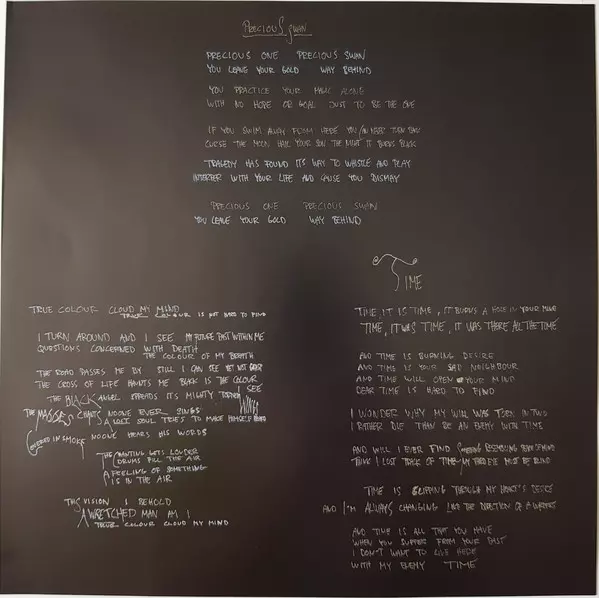 PRECIOUS SWAN
PRECIOUS ONE PRECIOUS SWAN
YOU LEAVE YOUR GOLD WAY BEHIND
YOU PRACTICE YOUR MAGIC ALONE
WITH NO HOPE OR GOAL JUST TO BE THE ONE
IF YOU SWIM AWAY FROM HERE YOU CAN NEVER TURN BACK
CURSE THE MOON HAIL YOUR SON THE NIGHT IT BURNS BLACK
TRAGEDY HAS FOUND IT'S WAY TO WHISTLE AND PLAY
INTERFER WITH YOUR LIFE AND CAUSE YOU DISMAY
PRECIOUS ONE PRECIOUS SWAN
YOU LEAVE YOUR GOLD WAY BEHIND
TRUE COLOUR CLOUD MY MIND
TRUE COLOUR IS NOT HARD TO FIND
I TURN AROUND AND I SEE MY FUTURE PAST WITHIN ME
QUESTIONS CONCERNED WITH DEATH
THE COLOUR OF MY BREATH
THE ROAD PASSES ME BY STILL I CAN SEE YET NOT
THE CROSS OF LIFE HAUNTS ME BLACK IS THE COLOUR
I SEE
THE BLACK ANGEL SPREADS IT'S MIGHTY
WINGS
THE MASSES CHANTS NOONE EVER SINGS
A LOST SOUL TRIES TO MAKE HIMSELF HEARD
COVERED IN SMOKE NOONE HEARS HIS WORDS
THE CHANTING GETS LOUDER
DRUMS FILL THE AIR
A FEELING OF SOMETHING
IS IN THE AIR
THIS VISION I BEHOLD
A WRETCHED MAN AM I
TRUE COLOUR CLOUD MY MIND
TIME
TIME, IT IS TIME, IT BURNS A HOLE IN YOUR MIND
TIME, IT WAS TIME, IT WAS THERE ALL THE TIME
AND TIME IS BURNING DESIRE
AND TIME IS YOUR SAD NEIGHBOUR
AND TIME WILL OPEN YOUR MIND
DEAR TIME IS HARD TO FIND
I WONDER WHY MY WILL WAS TORN IN TWO
I RATHER DIE THAN BE AN ENEMY WITH TIME
AND WILL I EVER FIND SOMETHING RESEMBLING PEACE OF MIND
THINK I LOST TRACK OF TIME MY THIRD EYE MUST BE BLIND
TIME IS SLIPPING THROUGH MY HEART'S
AND I'M ALWAYS CHANGING LIKE THE DIRECTION OF A
AND TIME IS ALL THAT YOU HAVE
WHEN YOU SUFFER FROM YOUR PAST
I DON'T WANT TO LIVE HERE
WITH MY ENEMY TIME